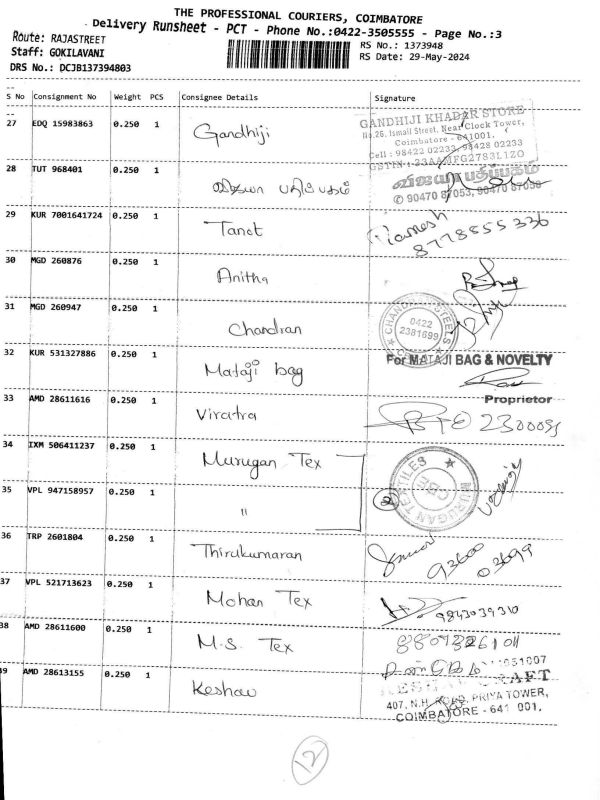 THE PROFESSIONAL COURIERS, COIMBATORE
Delivery Runsheet - PCT - Phone No.:0422-3505555 - Page No.:3
Route: RAJASTREET
RS No.: 1373948
Staff: GOKILAVANI
RS Date: 29-May-2024
DRS No.: DCJB137394803
S No Consignment No Weight PCS Consignee Details Signature
27 EDQ 15983863 0.250 1 Gandhiji
GANDHIJI KHADAR STORE
No.25, Ismail Street, Near Clock Tower,
Coimbatore - 641001.
Cell : 98422 02233, 98428 02233
28 TUT 968401 0.250 1 விஜயா பதிப்பகம்
விஜயா பதிப்பகம்
✆ 90470 87053, 90470 87058
29 KUR 7001641724 0.250 1 Tanot
Ramesh
8778555336
30 MGD 260876 0.250 1 Anitha
31 MGD 260947 0.250 1 Chandran
0422
2381699
32 KUR 531327886 0.250 1 Mataji bag
For MATAJI BAG & NOVELTY
Proprietor
33 AMD 28611616 0.250 1 Viratra
34 IXM 506411237 0.250 1 Murugan Tex
MURUGAN TEXTILES
CBE
2
35 VPL 947158957 0.250 1 "
36 TRP 2601804 0.250 1 Thirukumaran
93600
03699
37 VPL 521713623 0.250 1 Mohan Tex
9843039310
38 AMD 28611600 0.250 1 M.S. Tex
39 AMD 28613155 0.250 1 Keshav
407, N.H. ROAD, PRIYA TOWER,
COIMBATORE - 641 001.
12